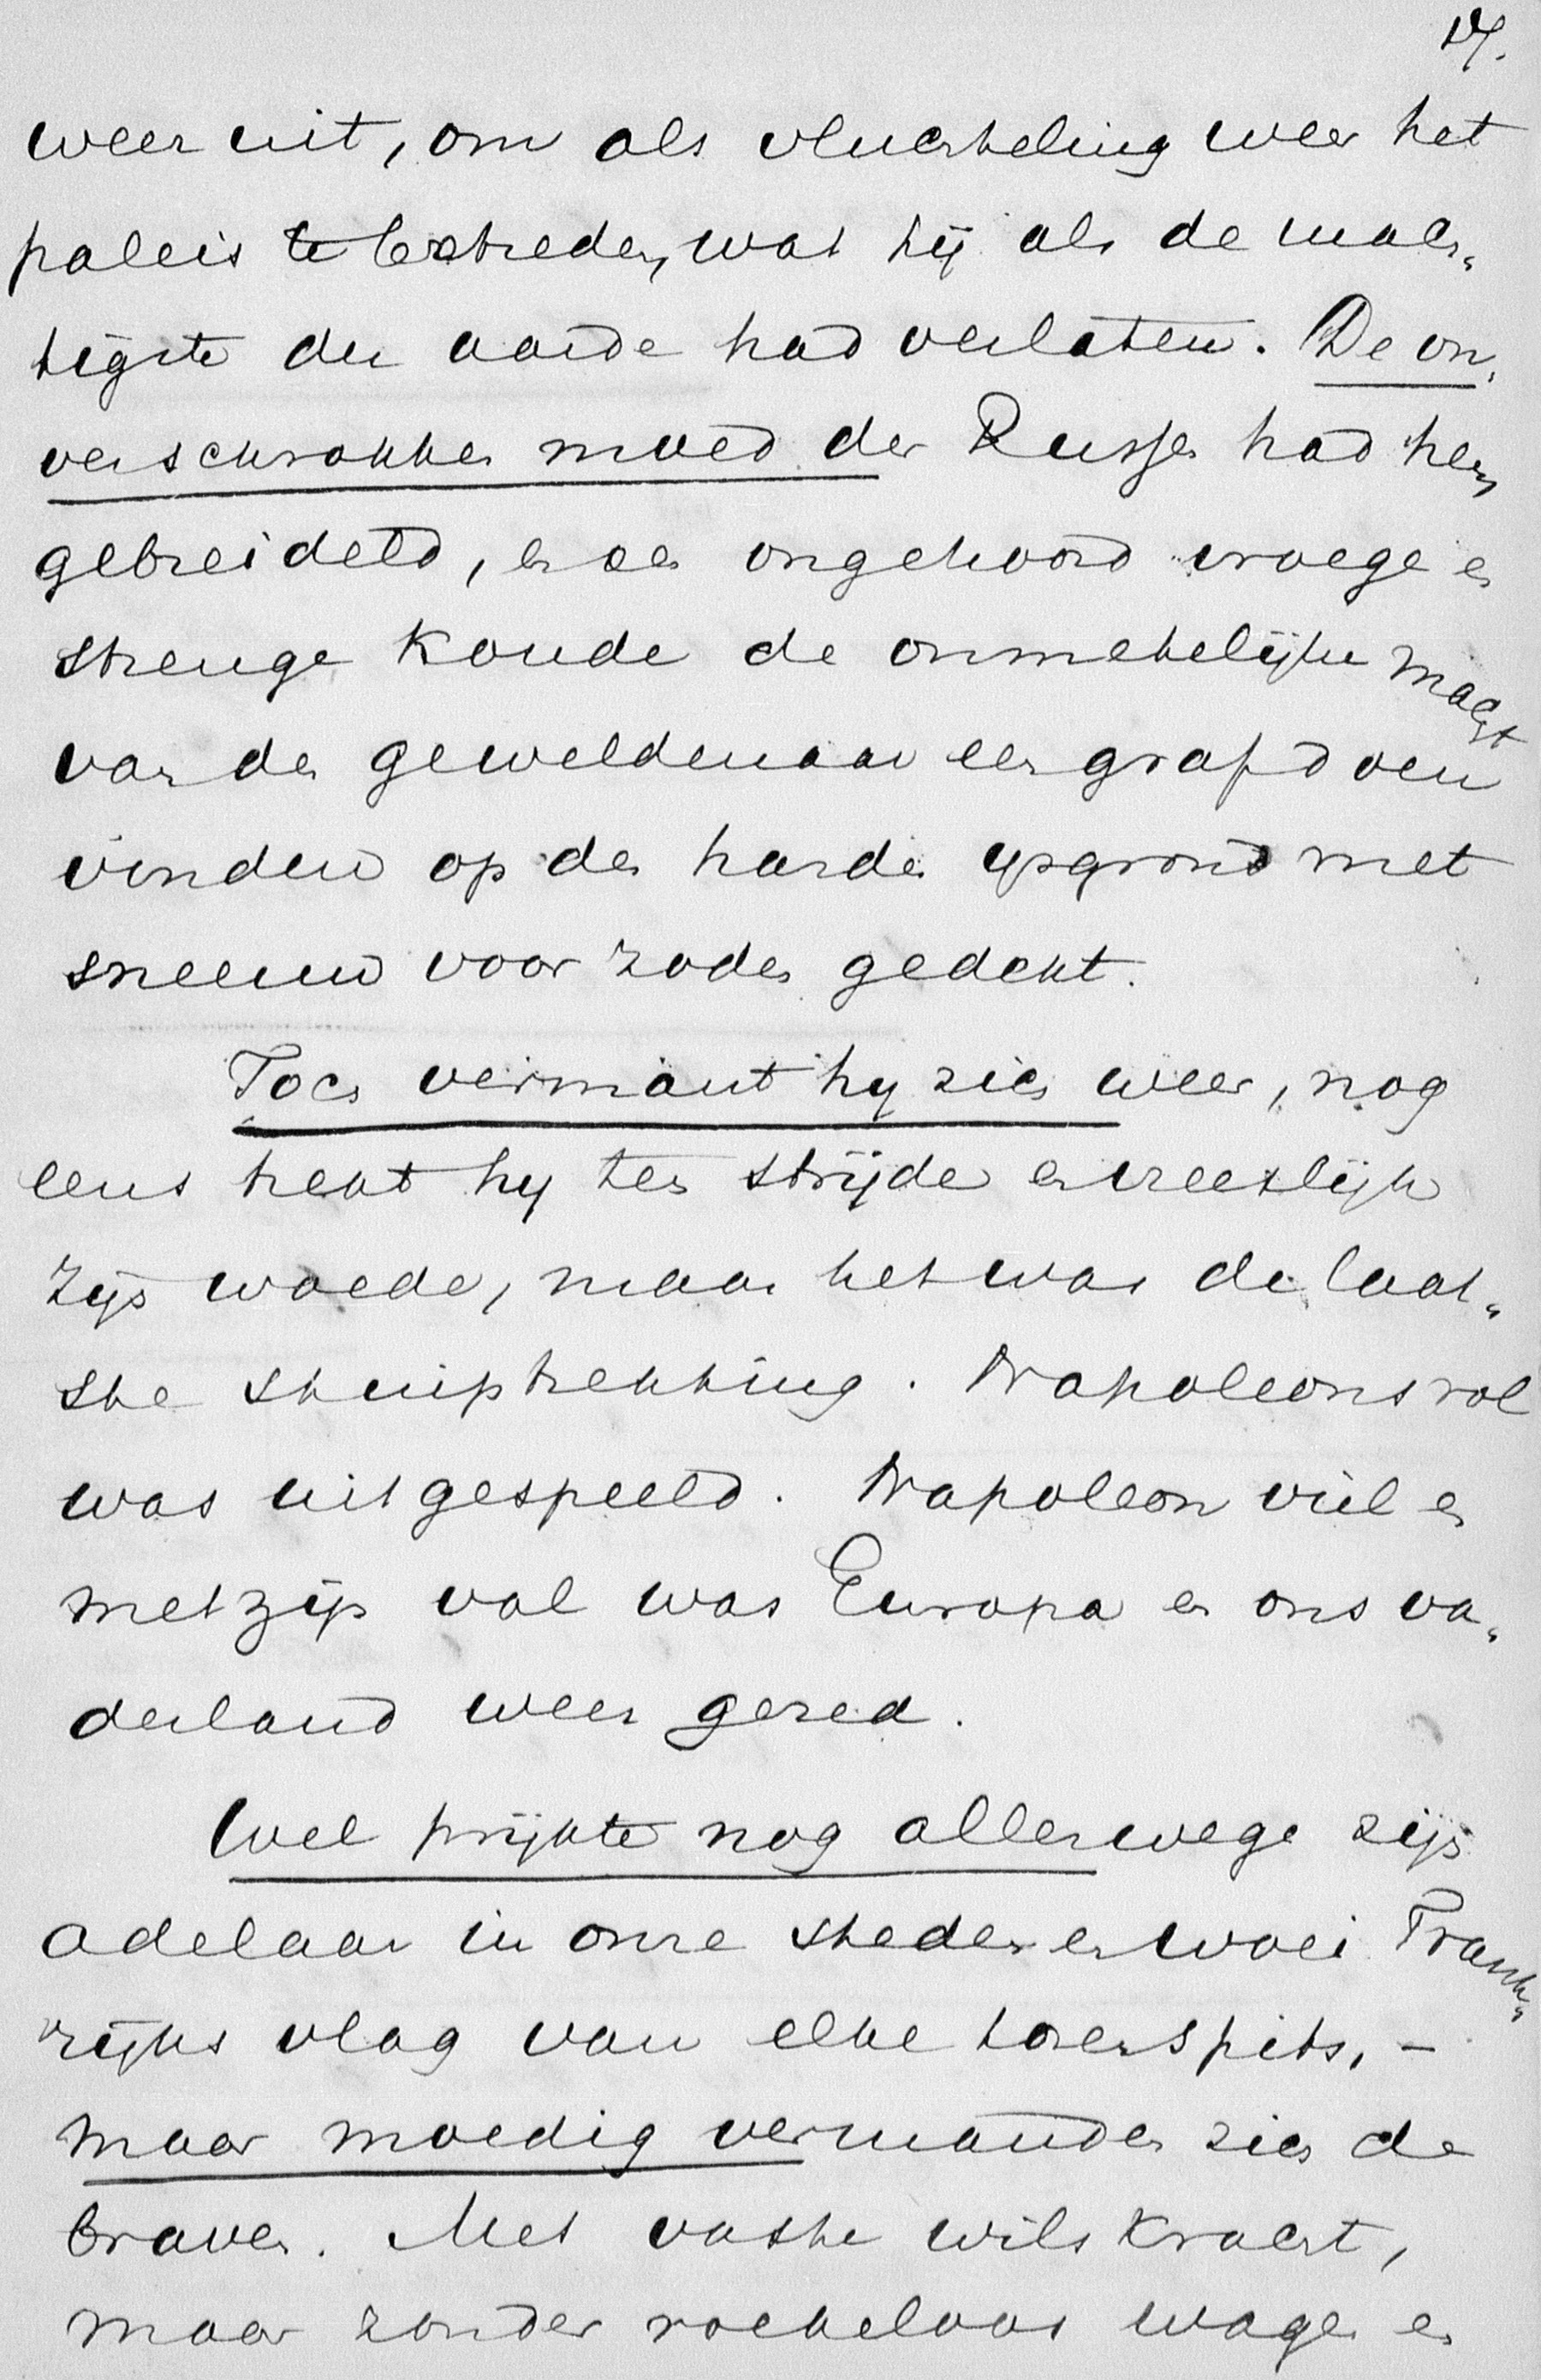 17.
weer uit, om als vluchteling weer het
paleis te betreden, wat hij als de mach„
tigste der aarde had verlaten. De on„
verschrokken moed der Russen had hem
gebreideld, en een ongehoord vroege en
strenge koude de onmetelijke macht
van den geweldenaar een graf doen
vinden op den harden ysgrond met
sneeuw voor zoden gedekt.
Toch vermant hy zich weer, nog
eens trekt hy ten strijde en vreeslijk
zijn woede, maar het was de laat„
ste stuiptrekking. Napoleons rol
was uitgespeeld. Napoleon viel en
met zijn val was Europa en ons va„
derland weer gered.
Wel prijkte nog allerwege zijn
adelaar in onze steden en woei Frank„
rijks vlag van elke torenspits, –
maar moedig vermanden zich de
braven. Met vaste wilskracht,
maar zonder roekeloos wagen en